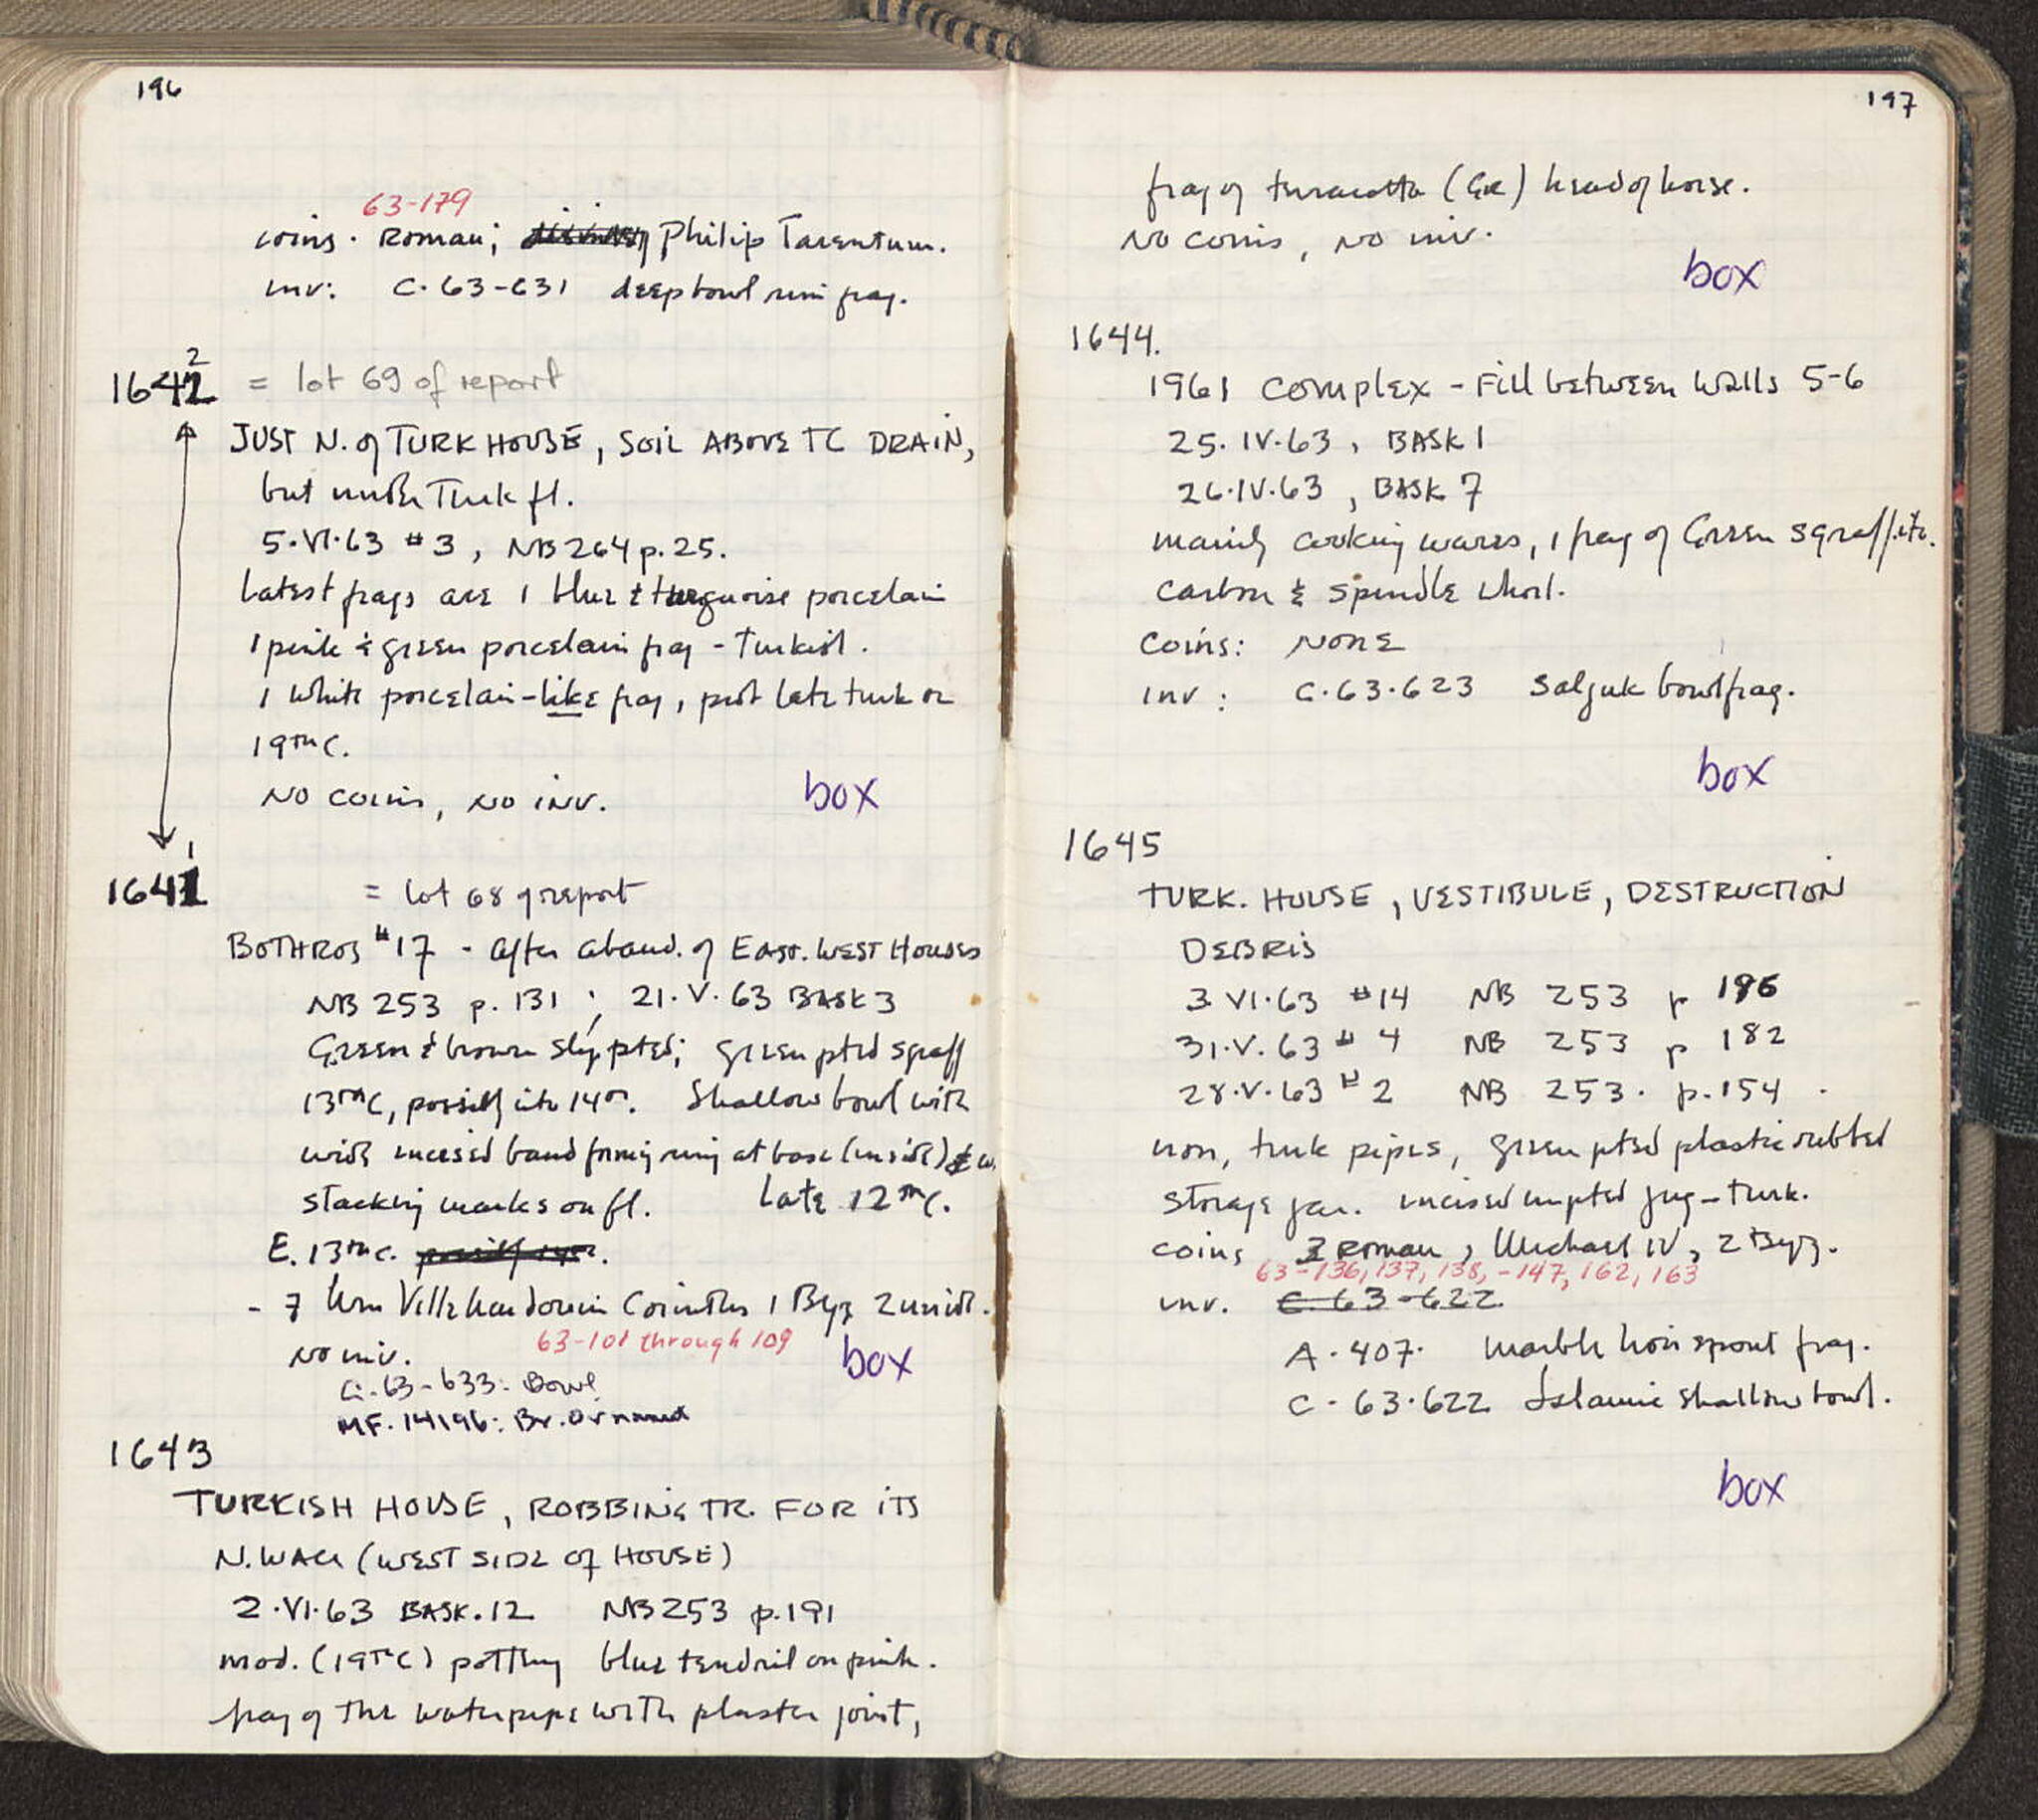 196
63-179
coins. Roman; Philip Tarentum.
inv: C. 63-631 deep bowl rim frag.
2
1642 = lot 69 of report
JUST N. of TURK HOUSE, SOIL ABOVE TC DRAIN,
but under Turk fl.
5.VI.63 #3, NB 264 p. 25.
Latest frags are 1 blue & turquoise porcelain
1 pink & green porcelain frag - Turkish.
1 white porcelain-like frag, prob late turk or
19TH C.
NO coins, NO inv. box
1
1641 = lot 68 of report
BOTHROS #17 - after aband. of EAST. WEST Houses
NB 253 p. 131; 21.V.63 BASK 3
Green & brown slip pted; green pted sgraff
13TH C, possibly into 14th. Shallow bowl with
wide incised band forming ring at base (inside) & w.
stacking marks on fl. late 12TH C.
E. 13TH C. possibly 14th.
- 7 Wm Villehardouin Corinth, 1 Byz 2 unid.
63-101 through 109
No inv. box
C.-63-633: Bowl
MF. 14196: Br. Ornament
1643
TURKISH HOUSE, ROBBING TR. FOR ITS
N. WALL (WEST SIDE OF HOUSE)
2.VI.63 BASK. 12 NB 253 p. 191
mod. (19TH C) pottery blue tendril on pink.
frag of the waterpipe with plaster joint,
197
frag of terracotta (GR) head of horse.
NO coins, NO inv.
box
1644.
1961 COMPLEX - Fill between Walls 5-6
25.IV.63, BASK 1
26.IV.63, BASK 7
mainly cooking wares, 1 frag of Green sgraffito.
Carbon & spindle whorl.
Coins: NONE
inv: C.63.623 Saljuk bowl frag.
box
1645
TURK. HOUSE, VESTIBULE, DESTRUCTION
DEBRIS
3 VI.63 #14 NB 253 p 196
31.V.63 # 4 NB 253 p 182
28.V.63 # 2 NB 253. p. 154.
iron, turk pipes, green pted plastic ribbed
storage jar. incised unpted jug - Turk.
coins 3 Roman, Michael IV, 2 Byz.
63-136, 137, 138, -147, 162, 163
inv. C. 63-622
A. 407. marble lion spout frag.
C. 63.622 Islamic shallow bowl.
box